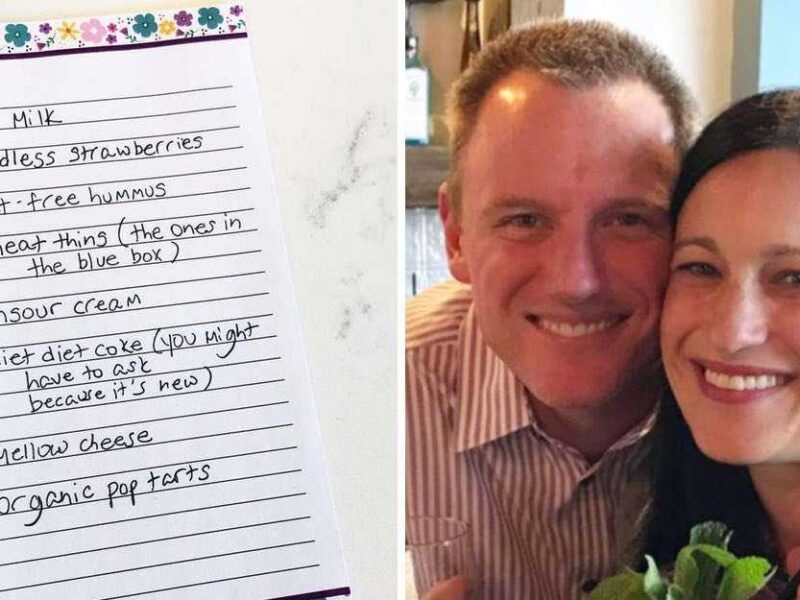 Milk
dless strawberries
t-free hummus
heat thing (the ones in
the blue box)
nsour cream
iet diet coke (you might
have to ask
because it's new)
mellow cheese
organic pop tarts